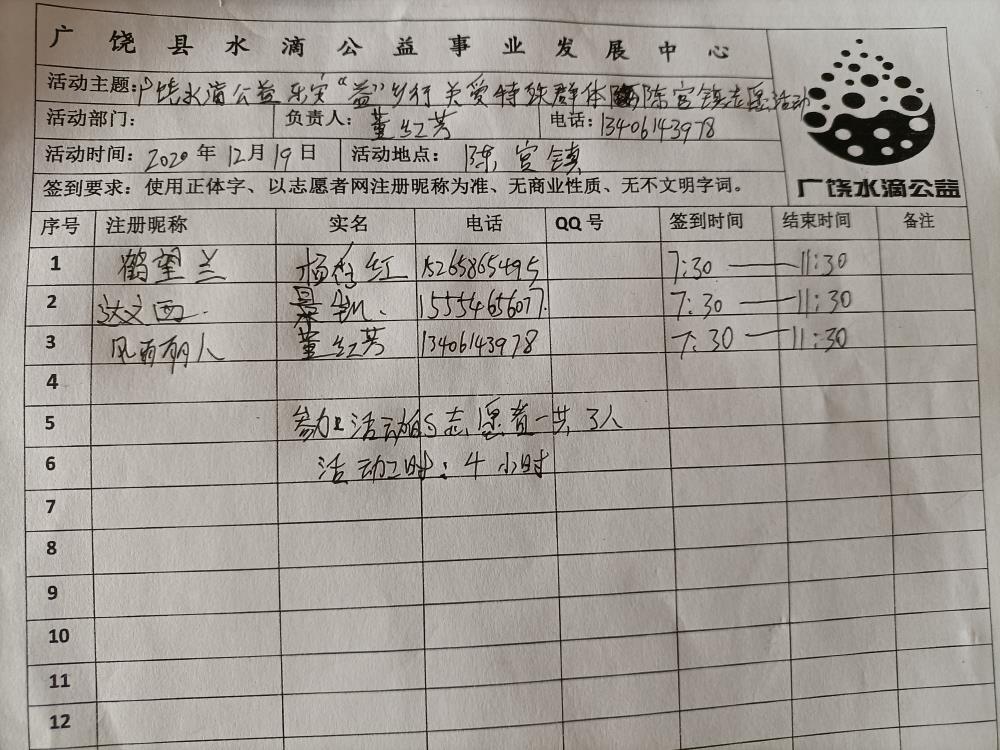 广饶县水滴公益事业发展中心
活动主题:广饶水滴公益 东安“益”乡行 关爱特殊群体 陈官镇志愿活动
活动部门: 负责人:董红芳 电话:13406143978
活动时间:2020年12月19日 活动地点:陈官镇
广饶水滴公益
签到要求:使用正体字、以志愿者网注册昵称为准、无商业性质、无不文明字词。
序号 注册昵称 实名 电话 QQ号 签到时间 结束时间 备注
1 鹤望兰 杨 红 15265865495 7:30 —— 11:30
2 达文西. 15554656077. 7:30 —— 11:30
3 风雨丽人 董红芳 13406143978 7:30 —— 11:30
4
5 参加活动的志愿者一共3人
6 活动工时:4小时
7
8
9
10
11
12